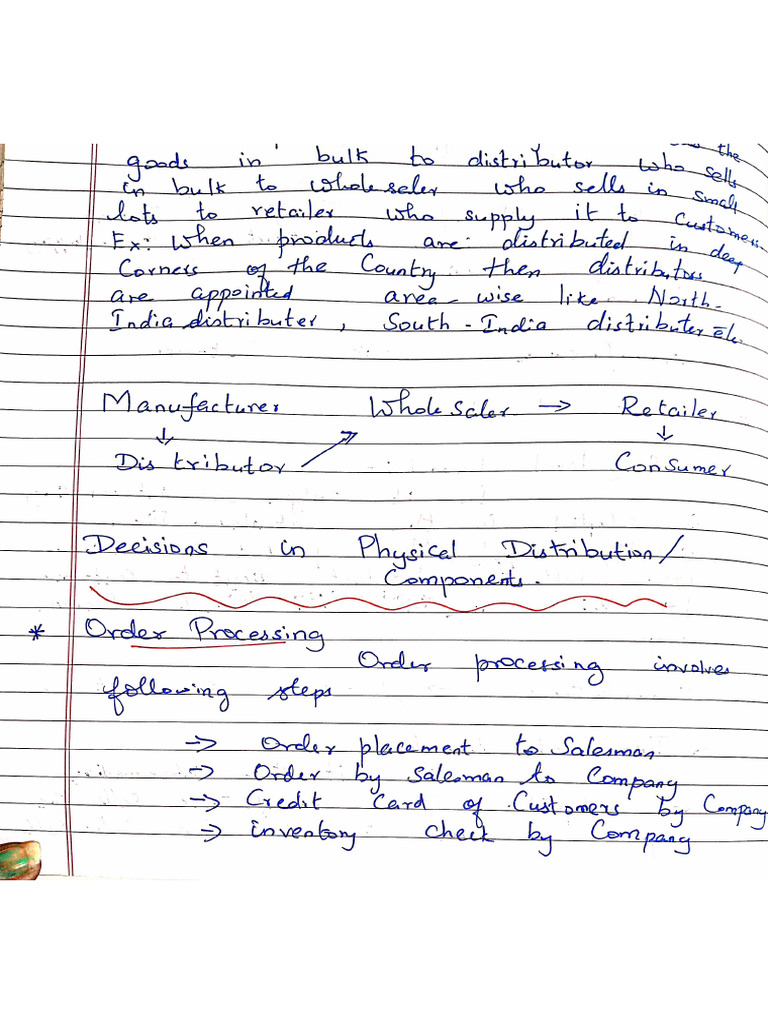 the
goods in bulk to distributor who sells
in bulk to wholeseler who sells in small
lots to retailer who supply it to customers.
Ex: When products are distributed in deep
Corners of the Country then distributors
are appointed area-wise like North-
India distributer, South-India distributer etc.
Manufacturer Wholesaler → Retailer
↓ ↗ ↓
Distributor Consumer
Decisions in Physical Distribution/
Components.
* Order Processing
Order processing involves
following steps
→ Order placement to Salesman
→ Order by Salesman to Company
→ Credit Card of Customers by Company
→ inventory check by Company